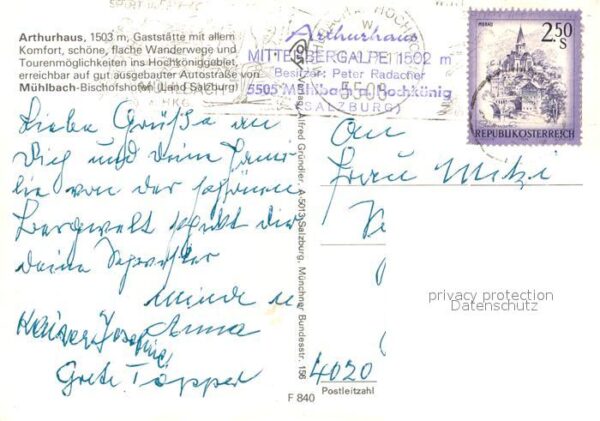 Arthurhaus, 1503 m, Gaststätte mit allem
Komfort, schöne, flache Wanderwege und
Tourenmöglichkeiten ins Hochköniggebiet,
erreichbar auf gut ausgebauter Autostraße von
Mühlbach-Bischofshofen (Land Salzburg)
Arthurhaus
MITTERBERGALPE 1502 m
Besitzer: Peter Radacher
5505 Mühlbach a. Hochkönig
(SALZBURG)
5505
MURAU
2.50 S
REPUBLIK ÖSTERREICH
Liebe Grüße an
Dich und deine Fami
lie von der schönen
Bergwelt schickt dir
deine Schwester
Minde u
Anna
Kaiser Josefine
Grete Töpper
Verlag Alfred Gründler, A-5013 Salzburg, Münchner Bundesstr. 156
An
Frau Mitzi
privacy protection
Datenschutz
4020
Postleitzahl
F 840